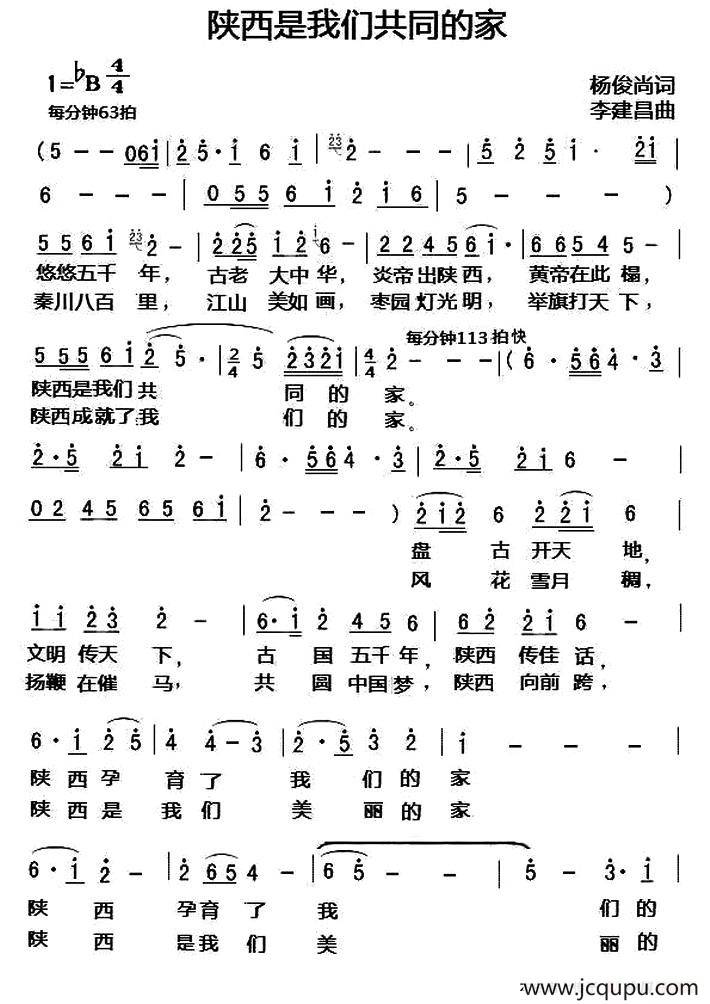 陕西是我们共同的家
1=♭B 4/4
杨俊尚词
每分钟63拍
李建昌曲
( 5 - - 061 | 2 5·1 6 1 | 23 2 - - | 5 2 5 1 · 21 |
6 - - - | 0 5 5 6 1 2 1 6 | 5 - - - )
5 5 6 1 23 2 - | 2 2 5 1 2 1 6 | 2 2 4 5 6 1 · | 6 6 5 1 2 - |
悠悠五千 年， 古老 大中 华， 炎帝出陕 西， 黄帝在此 榻，
秦川八百 里， 江山 美如 画， 枣园灯光 明， 举旗打天 下，
每分钟113拍 快
5 5 5 6 1 2 5 · | 2/4 5 2321 | 4/4 2 - - ( 6 · 564 · 3 |
陕西是我们 共 同 的 家。
陕西成就了我 们 的 家。
2·5 2 1 2 - | 6 · 564 · 3 | 2·5 2 1 6 - |
0 2 4 5 6 5 6 1 | 2 - - - ) 212 6 2 2 1 6
盘 古 开天 地，
风 花 雪月 稠，
1 1 2 3 2 - | 6·1 2 4 5 6 | 6 2 2 1 2 - |
文明 传天 下， 古 国 五千 年， 陕西 传佳 话，
扬鞭 在催 马， 共 圆 中国 梦， 陕西 向前 跨，
6 · 1 2 5 | 4 4-3 | 2·5 3 2 | 1 - - - |
陕 西 孕 育 了 我 们 的 家
陕 西 是 我 们 美 丽 的 家
6 · 1 2 - | 2 6 5 2 - | 6 5 - - | 5 - 3·1 |
陕 西 孕育 了 我 们 的
陕 西 是我 们 美 丽 的
www.jcqupu.com